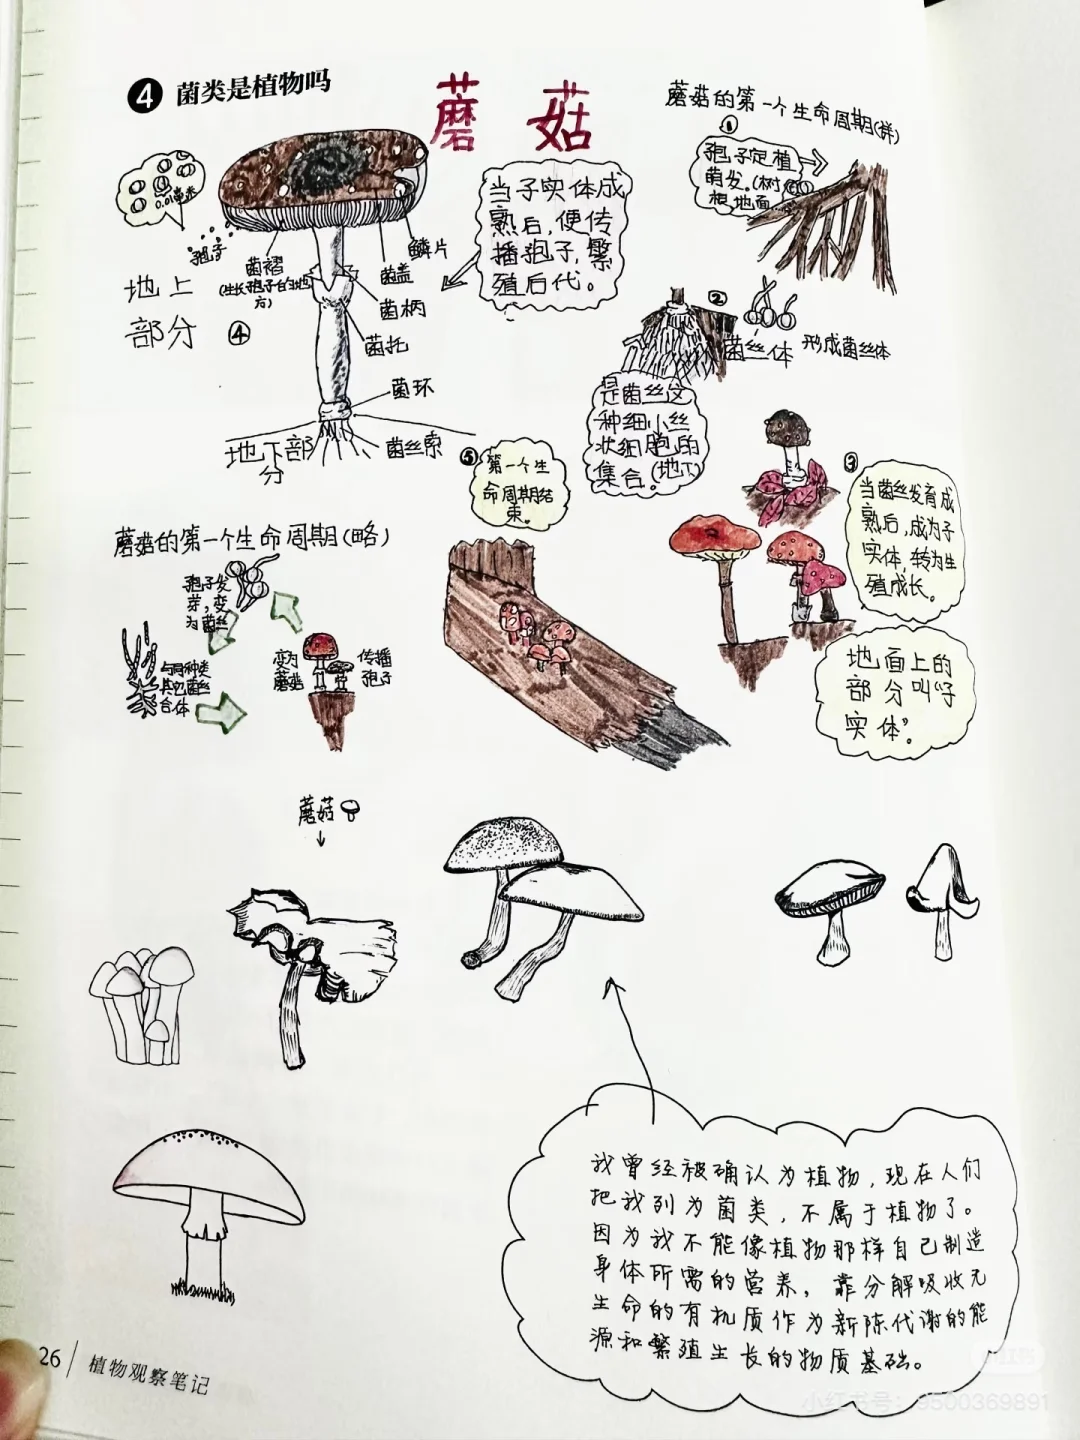 4 菌类是植物吗
蘑菇
蘑菇的第一个生命周期(详)
①
孢子定植
萌发。(树
根地面
0.01毫米
孢子
菌褶
(生长孢子的地
方)
鳞片
菌盖
菌柄
菌托
菌环
菌丝索
地上
部分 ④
地下部
分
当子实体成
熟后,便传
播孢子,繁
殖后代。
②
菌丝体 形成菌丝体
是菌丝这
种细小丝
状细胞的
集合。(地下)
③
当菌丝发育成
熟后,成为子
实体,转为生
殖成长。
地面上的
部分叫“子
实体”。
⑤
第一个生
命周期结
束。
蘑菇的第一个生命周期(略)
孢子发
芽,变
为菌丝
与同种类
其它菌丝
合体
变为
蘑菇
传播
孢子
蘑菇
我曾经被确认为植物,现在人们
把我列为菌类,不属于植物了。
因为我不能像植物那样自己制造
身体所需的营养,靠分解吸收无
生命的有机质作为新陈代谢的能
源和繁殖生长的物质基础。
26 | 植物观察笔记
小红书号:9500369891